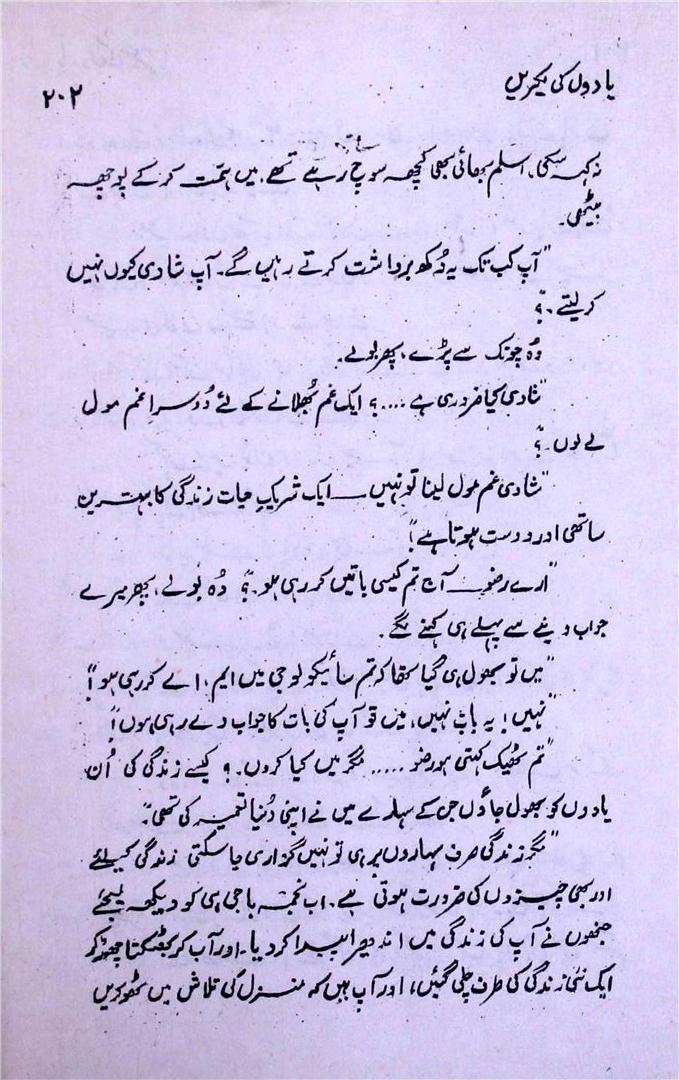 یادوں کی لکیریں
۲۰۲
نہ کہہ سکی، اسلم بھائی بھی کچھ سوچ رہے تھے، میں ہمت کر کے پوچھ
بیٹھی۔
"آپ کب تک یہ دُکھ برداشت کرتے رہیں گے۔ آپ شادی کیوں نہیں
کر لیتے۔؟"
وُہ چونک سے پڑے، پھر بولے۔
"شادی کیا ضروری ہے ....؟ ایک غم بُھلانے کے لئے دُوسرا غم مول
لے لوں۔؟"
"شادی غم مول لینا تو نہیں ــــ ایک شریکِ حیات زندگی کا بہترین
ساتھی اور دوست ہوتا ہے!"
"ارے رضو ــــ آج تم کیسی باتیں کر رہی ہو۔؟" وُہ بولے، پھر میرے
جواب دینے سے پہلے ہی کہنے لگے۔
"میں تو بھول ہی گیا تھا کہ تم سائیکولوجی میں ایم، اے کر رہی ہو!"
"نہیں! یہ بات نہیں، میں تو آپ کی بات کا جواب دے رہی ہوں!"
"تم ٹھیک کہتی ہو رضو ..... مگر میں کیا کروں۔؟ کیسے زندگی کی اُن
یادوں کو بھول جاؤں جن کے سہارے میں نے اپنی دُنیا تعمیر کی تھی۔"
"مگر زندگی صرف سہاروں پر ہی تو نہیں گزاری جا سکتی زندگی کیلئے
اور بھی چیزوں کی ضرورت ہوتی ہے۔ اب نجمہ باجی ہی کو دیکھ لیجئے
جنھوں نے آپ کی زندگی میں اندھیرا پیدا کر دیا۔ اور آپ کو بھٹکتا چھوڑ کر
ایک نئی زندگی کی طرف چلی گئیں، اور آپ ہیں کہ منزل کی تلاش میں ٹھوکریں